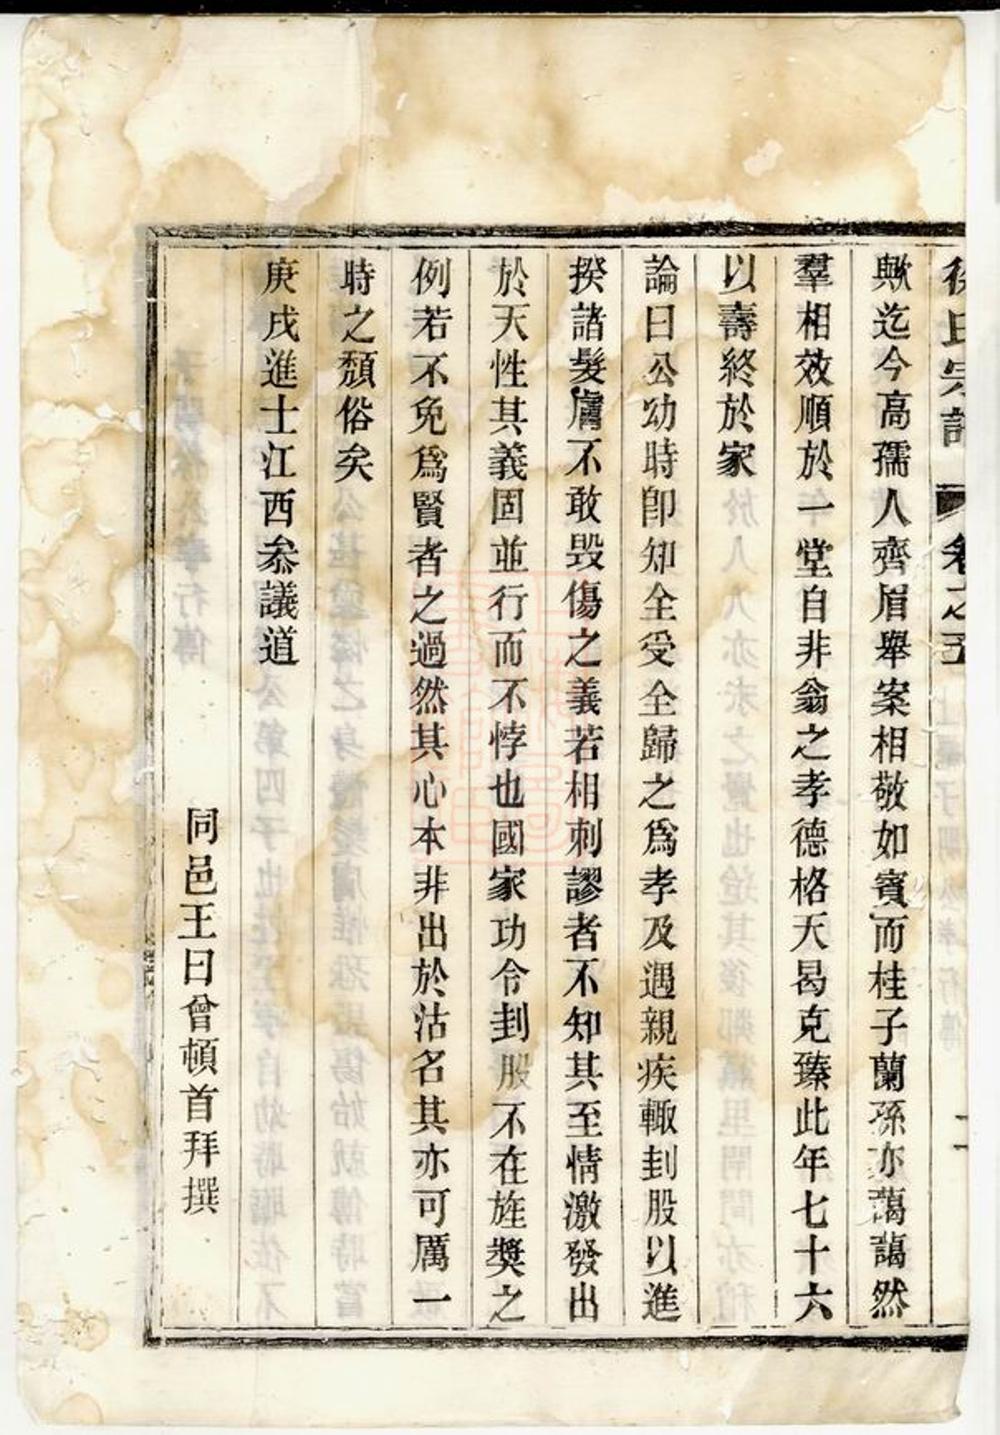 徐氏宗譜 卷之五 二
歟迄今高孺人齊眉舉案相敬如賓而桂子蘭孫亦藹藹然
羣相效順於一堂自非翁之孝德格天曷克臻此年七十六
以壽終於家
論曰公幼時卽知全受全歸之爲孝及遇親疾輙刲股以進
揆諸髮膚不敢毀傷之義若相刺謬者不知其至情激發出
於天性其義固並行而不悖也國家功令刲股不在旌獎之
例若不免爲賢者之過然其心本非出於沽名其亦可厲一
時之頹俗矣
庚戌進士江西叅議道
同邑王日曾頓首拜撰